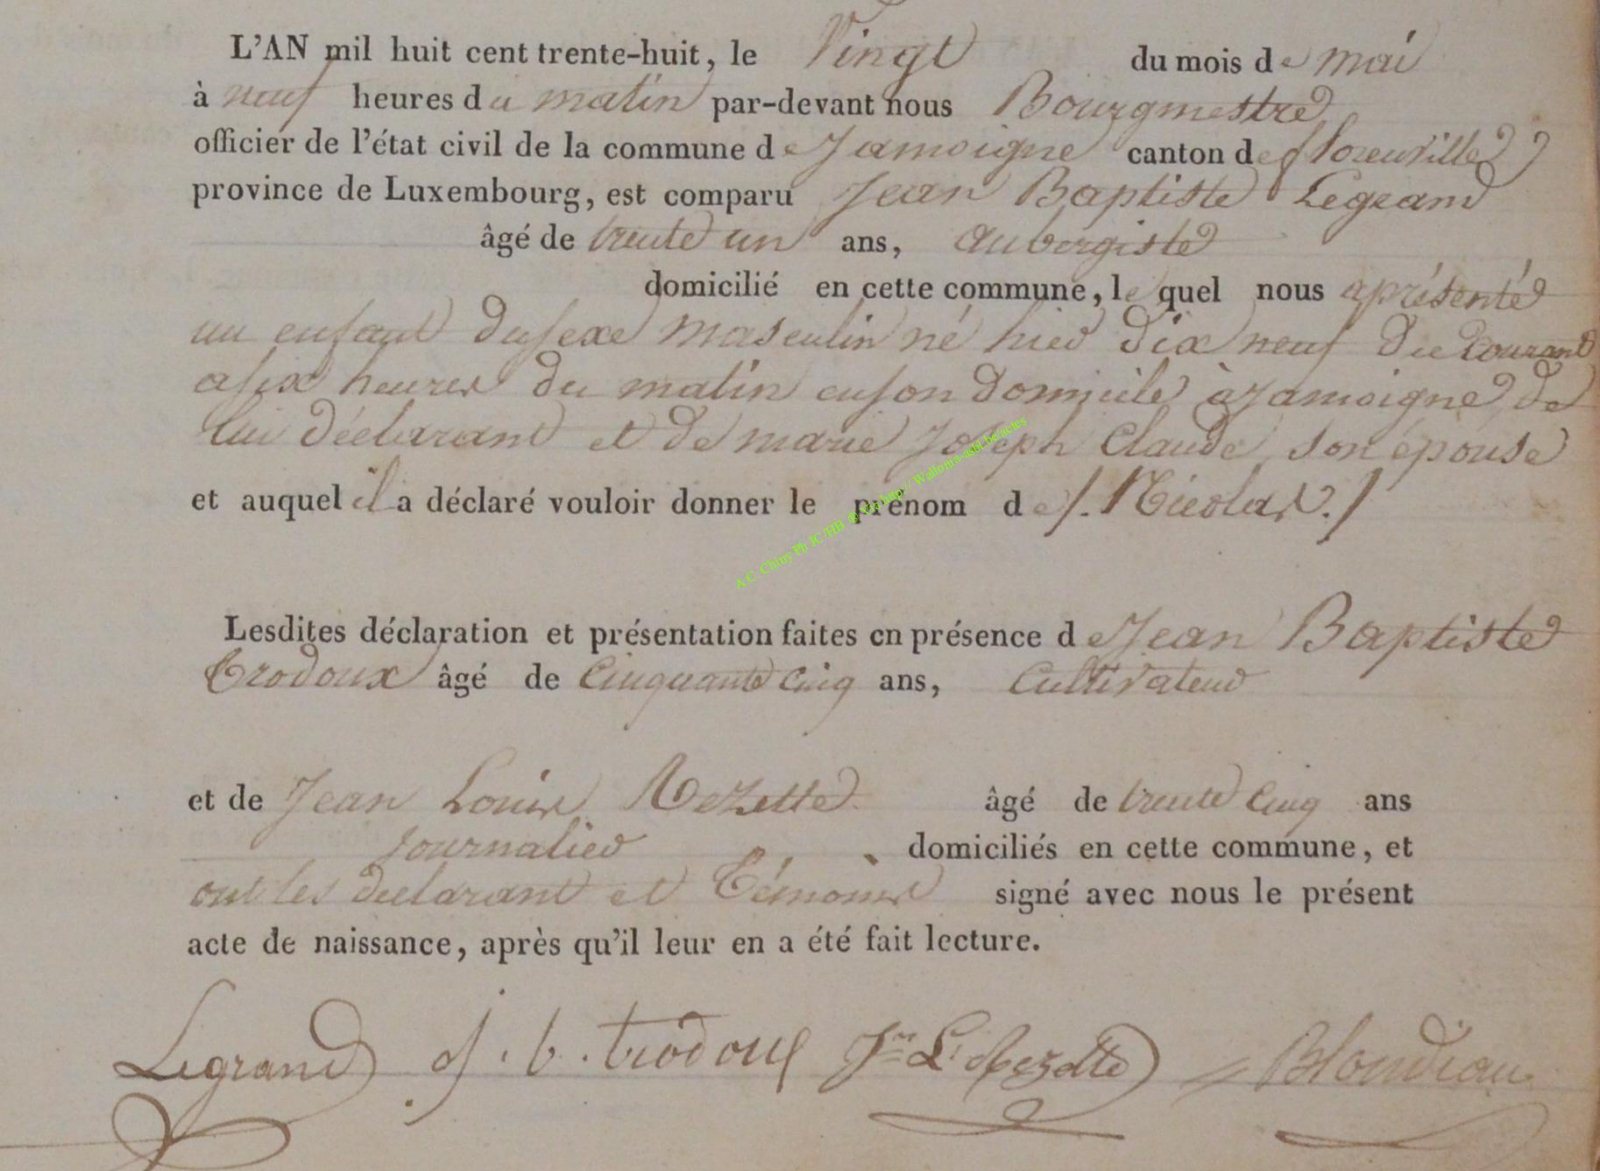 L'AN mil huit cent trente-huit, le Vingt du mois de mai
à neuf heures du matin par-devant nous Bourgmestre
officier de l'état civil de la commune de Jamoigne canton de florenville
province de Luxembourg, est comparu Jean Baptiste Legrand
âgé de trente un ans, aubergiste
domicilié en cette commune, le quel nous a présenté
un enfant du sexe masculin né hier dix neuf du courant
a six heures du matin en son domicile à Jamoigne, de
lui déclarant et de marie Joseph Claude, son épouse
et auquel il a déclaré vouloir donner le prénom de /. Nicolas. /
Lesdites déclaration et présentation faites en présence de Jean Baptiste
Trodoux âgé de Cinquante Cinq ans, Cultivateur
et de Jean Louis Rezette âgé de trente Cinq ans
Journalier domiciliés en cette commune, et
ont les declarant et Témoins signé avec nous le présent
acte de naissance, après qu'il leur en a été fait lecture.
Legrand J. b. trodoux Jn L. Rezette Blondiau